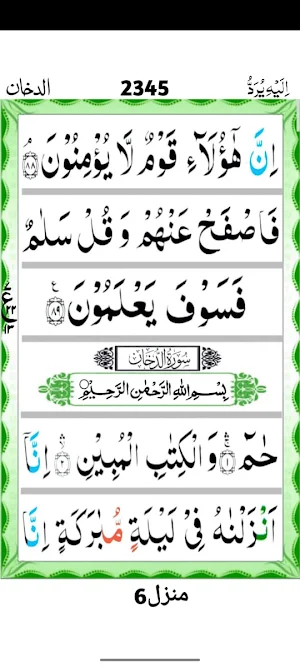 اِلَیْهِ یُرَدُّ 2345 الدخان
اِنَّ هٰۤؤُلَآءِ قَوْمٌ لَّا یُؤْمِنُوْنَ ۘ ﴿۸۸﴾
فَاصْفَحْ عَنْهُمْ وَ قُلْ سَلٰمٌ
فَسَوْفَ یَعْلَمُوْنَ ﴿۸۹﴾ ع
سُوْرَةُ الدُّخَانِ
بِسْمِ اللّٰهِ الرَّحْمٰنِ الرَّحِیْمِ
حٰمٓ ﴿۱﴾ وَ الْكِتٰبِ الْمُبِیْنِ ﴿۲﴾ اِنَّاۤ
اَنْزَلْنٰهُ فِیْ لَیْلَةٍ مُّبٰرَكَةٍ اِنَّا
منزل6